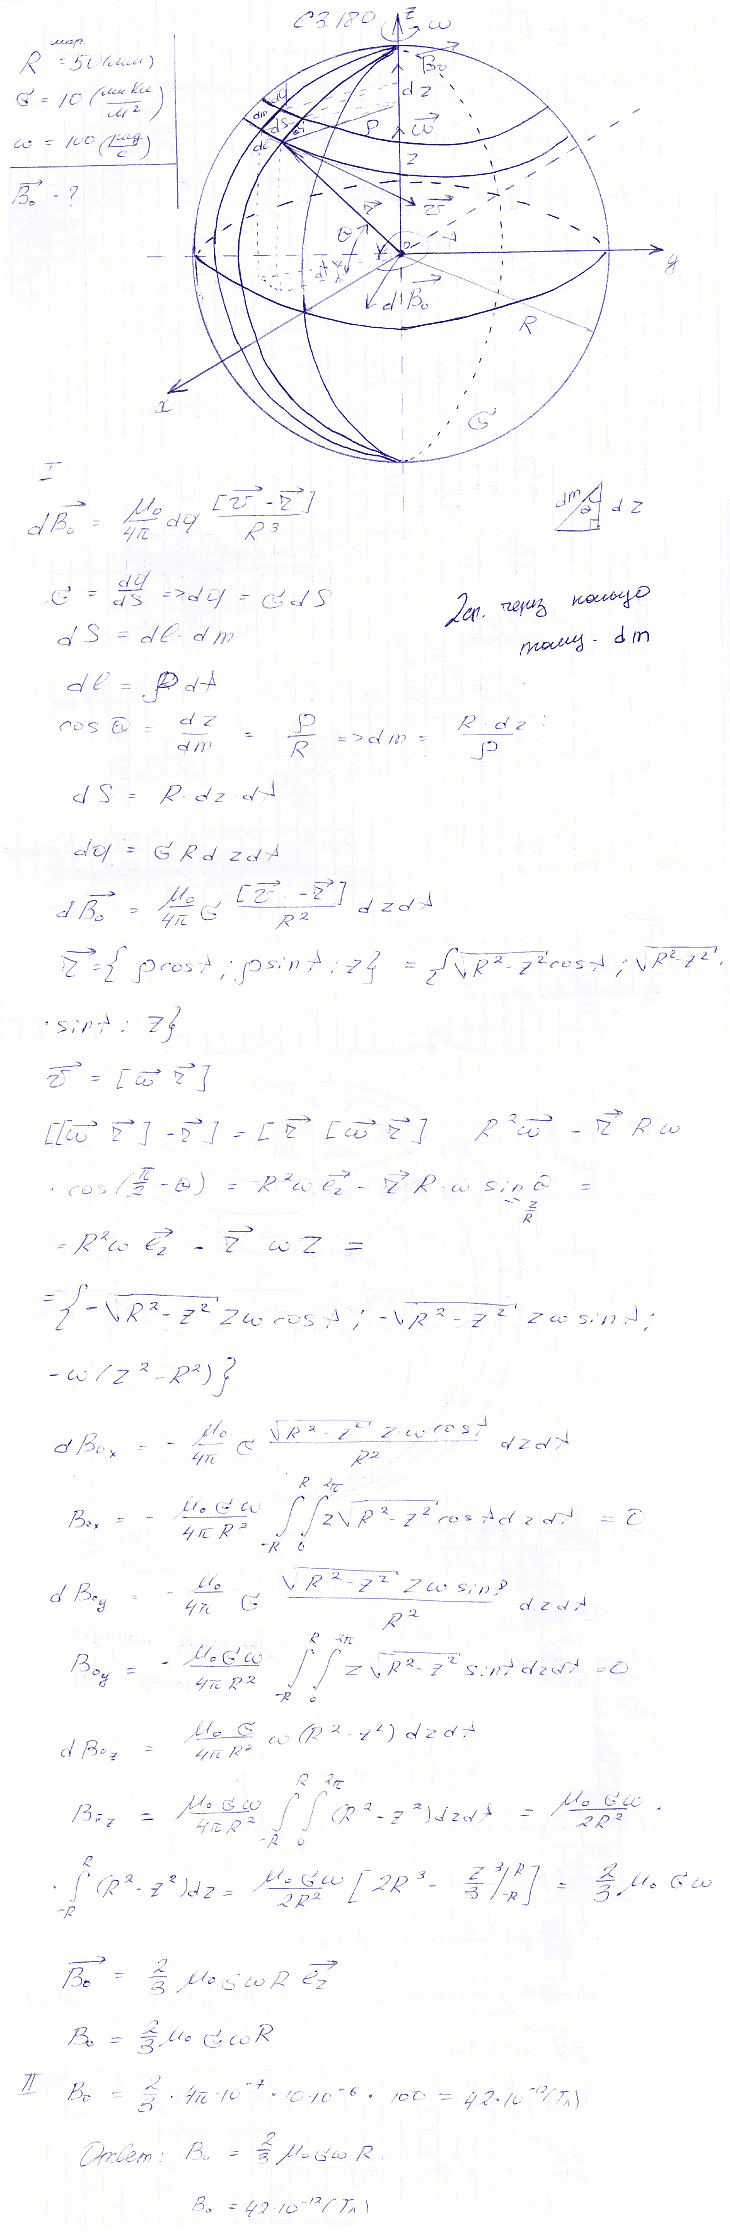 СЗ 180
R = 50 (мм)
шар.
σ = 10 (мкКл/м²)
ω = 100 (рад/с)
B⃗₀ - ?
z ω
B⃗₀
dq dz
dm dS ρ ω⃗
dl z
r⃗ v⃗
θ 0 y
dB⃗₀
R
x
σ
I
dB⃗₀ = μ₀/4π dq [v⃗ -r⃗]/R³
dm θ dz
σ = dq/dS => dq = σdS
2сп. через кольцо
dS = dl · dm
толщ. dm
dl = ρdλ
cos θ = dz/dm = ρ/R => dm = R·dz/ρ
dS = R·dz dλ
dq = σRdzdλ
dB⃗₀ = μ₀/4π σ [v⃗ -r⃗]/R² dzdλ
r⃗ = {ρcosλ; ρsinλ; z} = {√(R²-z²)cosλ; √(R²-z²)·
·sinλ; z}
v⃗ = [ω⃗ r⃗]
[[ω⃗ r⃗] -r⃗] = [r⃗ [ω⃗ r⃗]] R²ω⃗ - r⃗ Rω
·cos(π/2 - θ) = R²ω e⃗z - r⃗ R·ω sinθ =
= z/R
= R²ω e⃗z - r⃗ ωz =
= {-√(R²-z²) zω cosλ; -√(R²-z²) zω sinλ;
-ω(z²-R²)}
dB₀x = - μ₀/4π σ √(R²-z²) z·ω cosλ/R² dzdλ
B₀x = - μ₀σω/4πR² ∫₋R^R ∫₀^2π z√(R²-z²)cosλdzdλ = 0
dB₀y = - μ₀/4π σ √(R²-z²) zω sinλ/R² dzdλ
B₀y = - μ₀σω/4πR² ∫₋R^R ∫₀^2π z√(R²-z²) sinλdzdλ = 0
dB₀z = μ₀σ/4πR² ω(R²-z²) dzdλ
B₀z = μ₀σω/4πR² ∫₋R^R ∫₀^2π (R²-z²)dzdλ = μ₀σω/2R² ·
· ∫₋R^R (R²-z²)dz = μ₀σω/2R² [2R³ - z³/3 |₋R^R] = 2/3 μ₀σω
B⃗₀ = 2/3 μ₀σωR e⃗z
B₀ = 2/3 μ₀σωR
II B₀ = 2/3 · 4π·10⁻⁷ · 10·10⁻⁶ · 100 = 42·10⁻¹²(Тл)
Ответ: B₀ = 2/3 μ₀σωR
B₀ = 42·10⁻¹²(Тл)